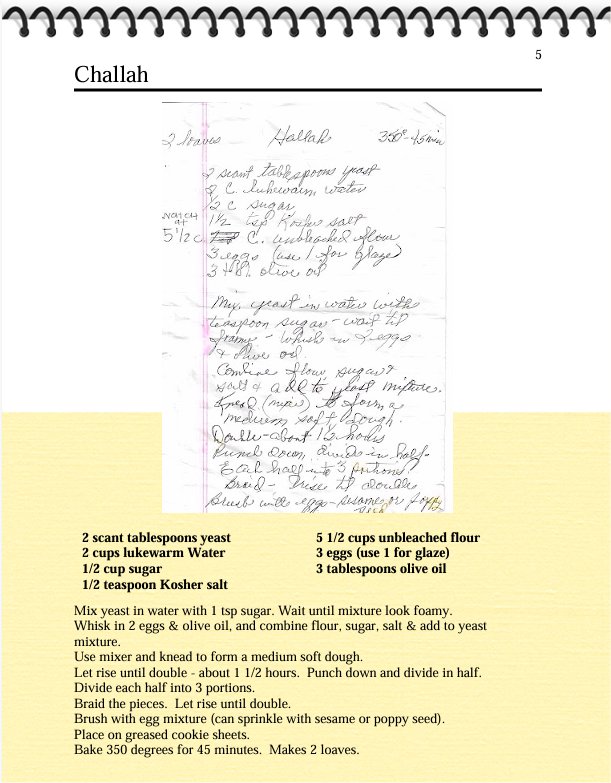 5
Challah
2 loaves Hallah 350° - 45 min
2 scant tablespoons yeast
2 C. lukewarm water
1/2 c sugar
1 1/2 tsp Kosher salt
watch
at
5 1/2 c. C. unbleached flour
3 eggs (use 1 for glaze)
3 tbl. olive oil
Mix yeast in water with
teaspoon sugar - wait til
foamy - Whisk in 2 eggs
& olive oil
Combine flour sugar &
salt & add to yeast mixture.
Knead (mixer) to form a
medium soft dough.
Double - about 1 1/2 hours
Punch down, divide in half.
Each half into 3 portions
Braid - rise til double
Brush with egg - sesame or poppy
2 scant tablespoons yeast
2 cups lukewarm Water
1/2 cup sugar
1/2 teaspoon Kosher salt
5 1/2 cups unbleached flour
3 eggs (use 1 for glaze)
3 tablespoons olive oil
Mix yeast in water with 1 tsp sugar. Wait until mixture look foamy.
Whisk in 2 eggs & olive oil, and combine flour, sugar, salt & add to yeast
mixture.
Use mixer and knead to form a medium soft dough.
Let rise until double - about 1 1/2 hours. Punch down and divide in half.
Divide each half into 3 portions.
Braid the pieces. Let rise until double.
Brush with egg mixture (can sprinkle with sesame or poppy seed).
Place on greased cookie sheets.
Bake 350 degrees for 45 minutes. Makes 2 loaves.